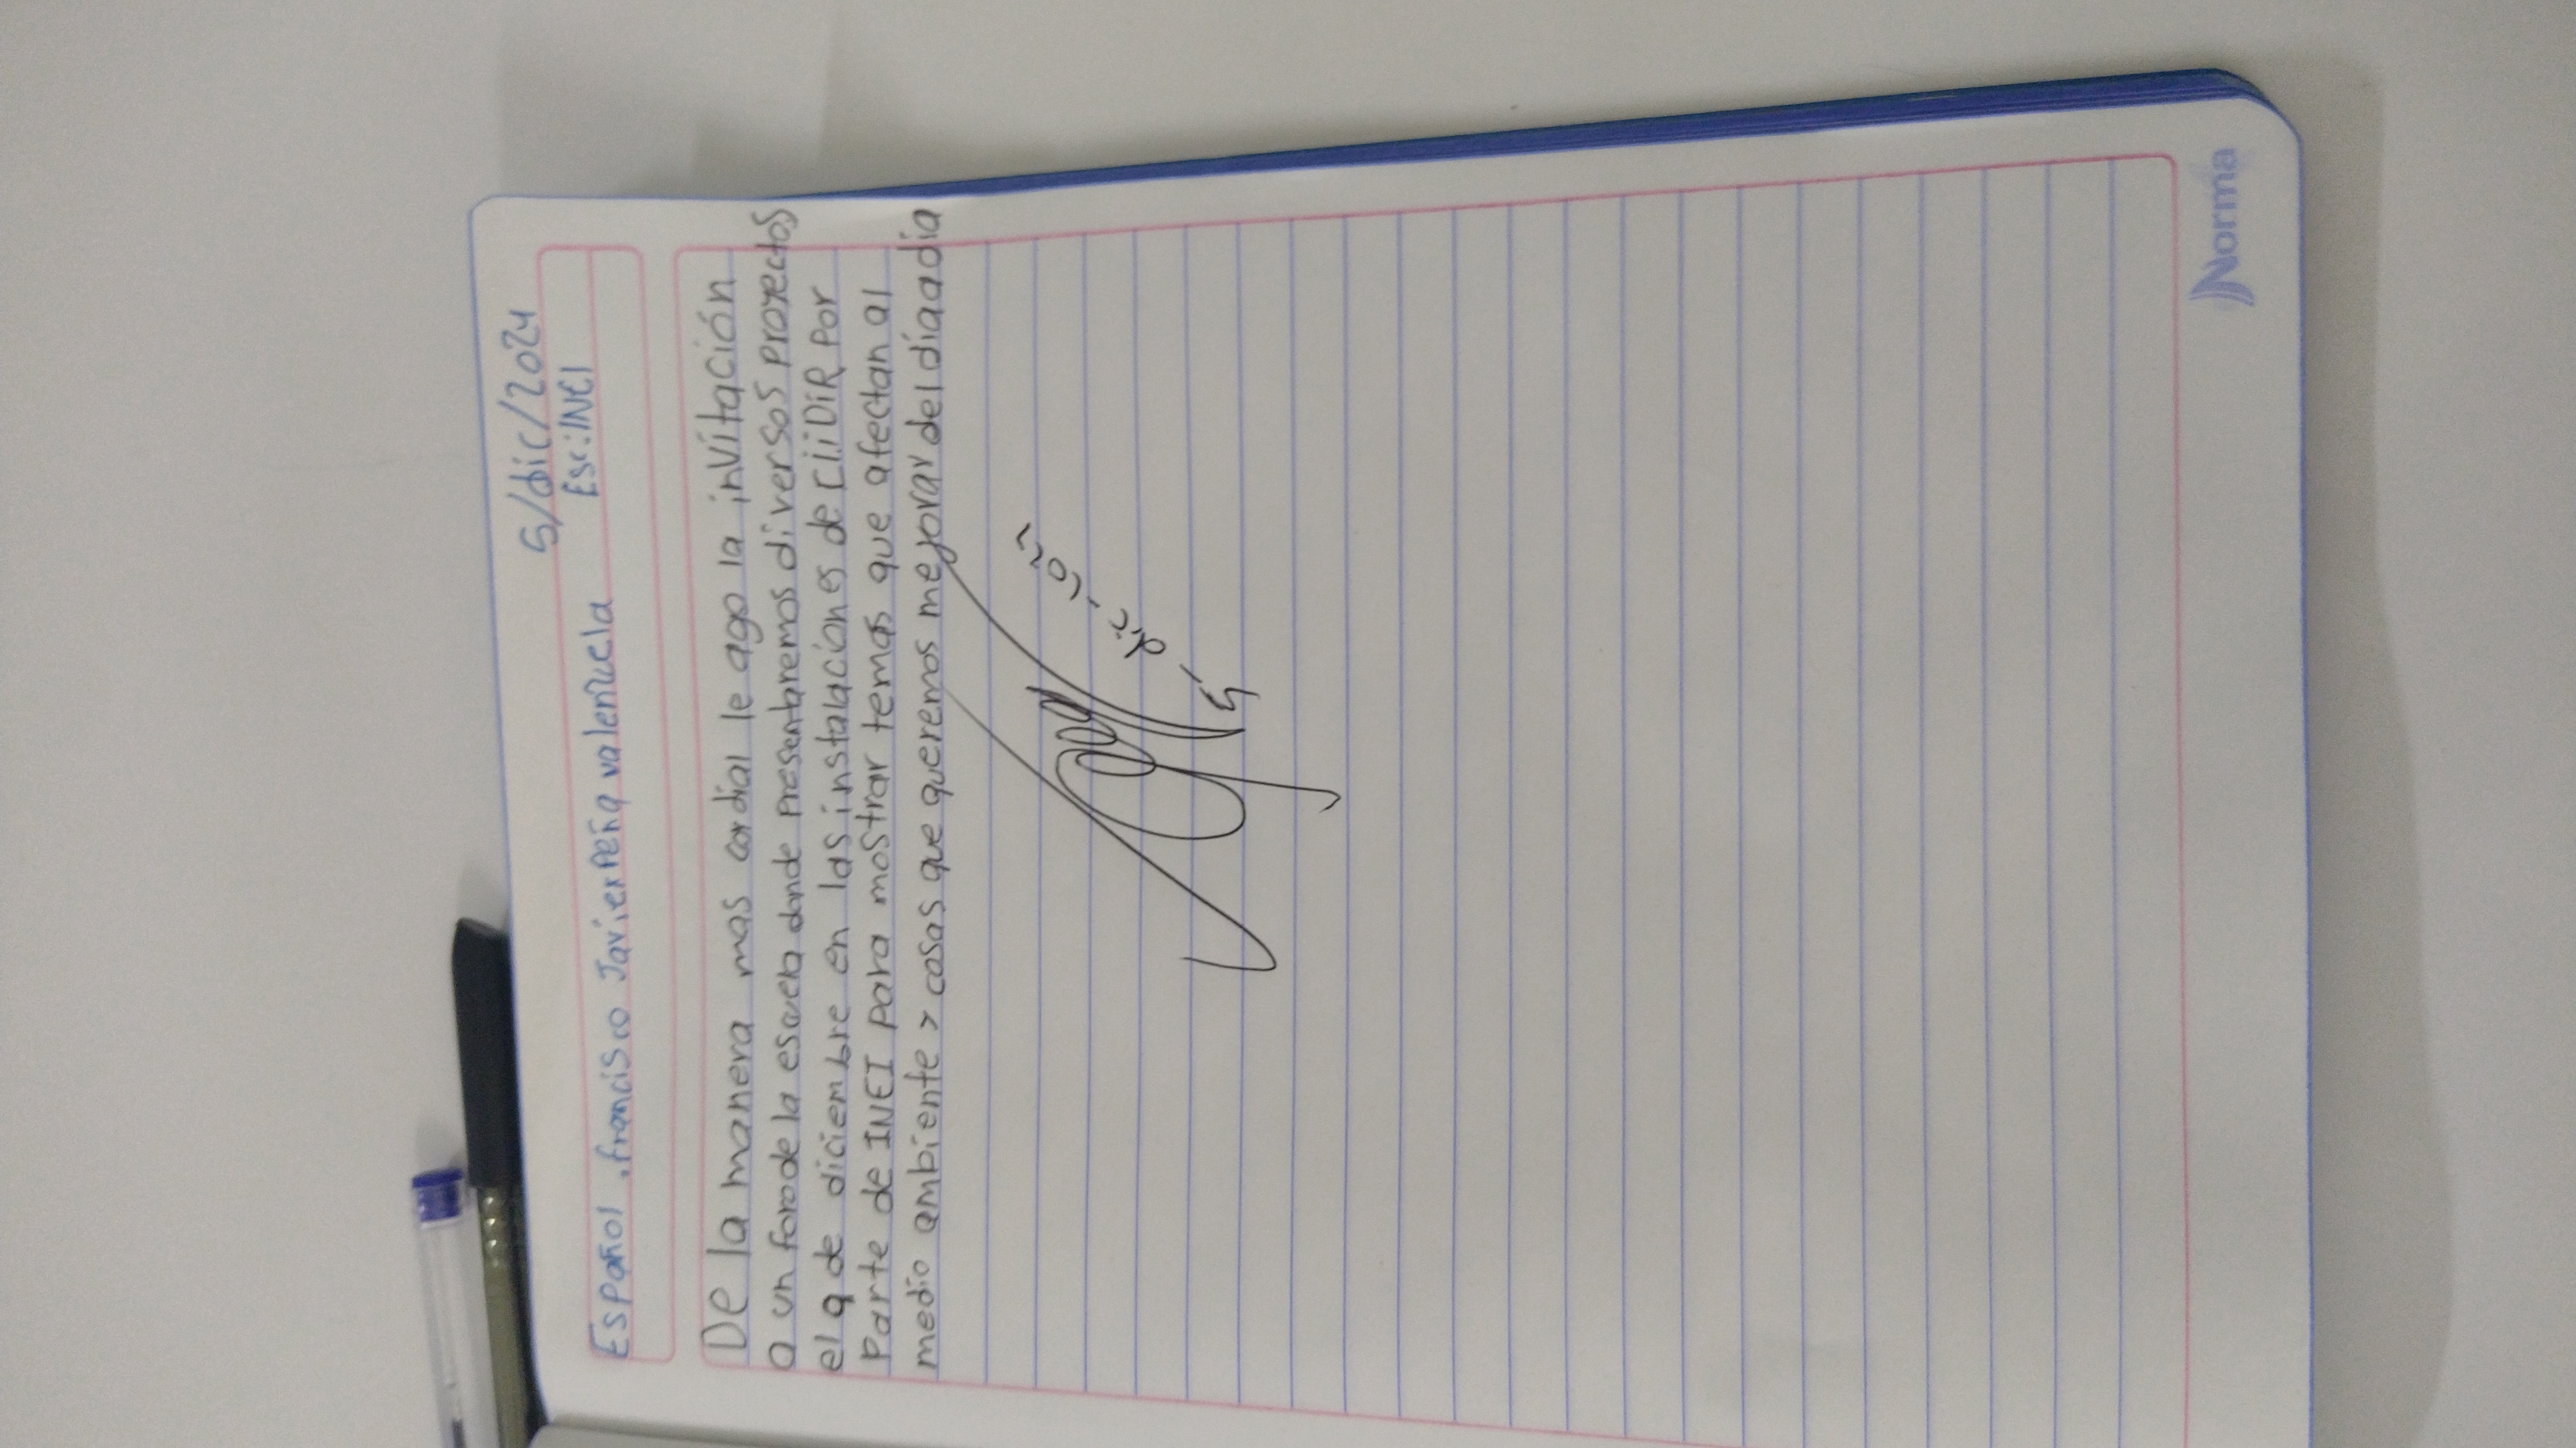 5/dic/2024
Español . francisco Javier Peña valenzuela Esc:INEI
De la manera mas cordial le ago la invitación
a un foro de la escuela donde presentaremos diversos proyectos
el 9 de diciembre en las instalaciones de CIIDIR por
parte de INEI para mostrar temas que afectan al
medio ambiente y cosas que queremos mejorar del dia a dia
5 - dic -
Norma